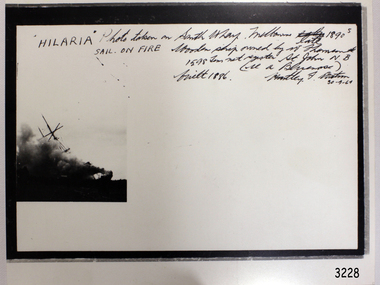 "HILARIA" Photo taken on South Wharf. Melbourne late 1890's
SAIL. ON FIRE Wooden ship owned by W Thomson
1598 Ton net register St John N.B
(ie a Bluenose)
built 1886.
3228